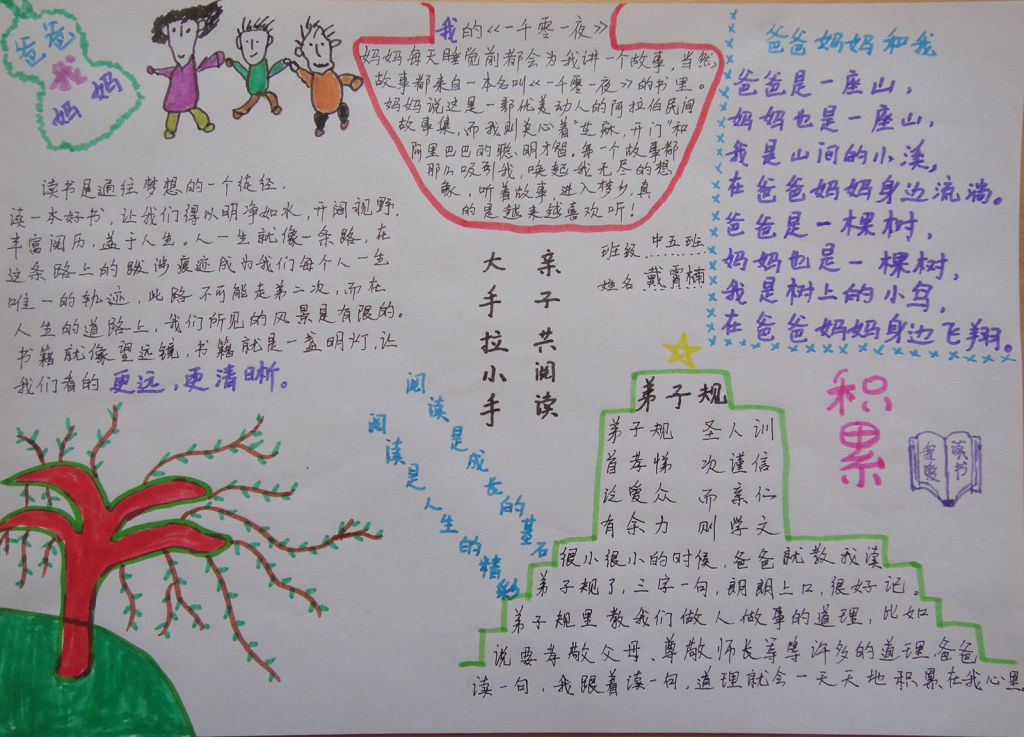 爸爸
我
妈妈
我的《一千零一夜》
妈妈每天睡觉前都会为我讲一个故事,当然,
故事都来自一本名叫《一千零一夜》的书里。
妈妈说这是一部优美动人的阿拉伯民间
故事集,而我则关心着“芝麻,开门”和
阿里巴巴的聪明才智。每一个故事都
那么吸引我,唤起我无尽的想
象,听着故事,进入梦乡,真
的是越来越喜欢听!
爸爸妈妈和我
爸爸是一座山,
妈妈也是一座山,
我是山间的小溪,
在爸爸妈妈身边流淌。
爸爸是一棵树,
妈妈也是一棵树,
我是树上的小鸟,
在爸爸妈妈身边飞翔。
读书是通往梦想的一个徒径,
读一本好书,让我们得以明净如水,开阔视野,
丰富阅历,益于人生。人一生就像一条路,在
这条路上的跋涉痕迹成为我们每个人一生
唯一的轨迹,此路不可能走第二次,而在
人生的道路上,我们所见的风景是有限的。
书籍就像望远镜,书籍就是一盏明灯,让
我们看的更远,更清晰。
班级 中五班
姓名 戴霄楠
大手拉小手
亲子共阅读
阅读是成长的基石
阅读是人生的精彩
弟子规
弟子规 圣人训
首孝悌 次谨信
泛爱众 而亲仁
有余力 则学文
很小很小的时候,爸爸就教我读
弟子规了,三字一句,朗朗上口,很好记。
弟子规里教我们做人做事的道理,比如
说要孝敬父母、尊敬师长等等许多的道理。爸爸
读一句,我跟着读一句,道理就会一天天地积累在我心里
积累
我爱读书